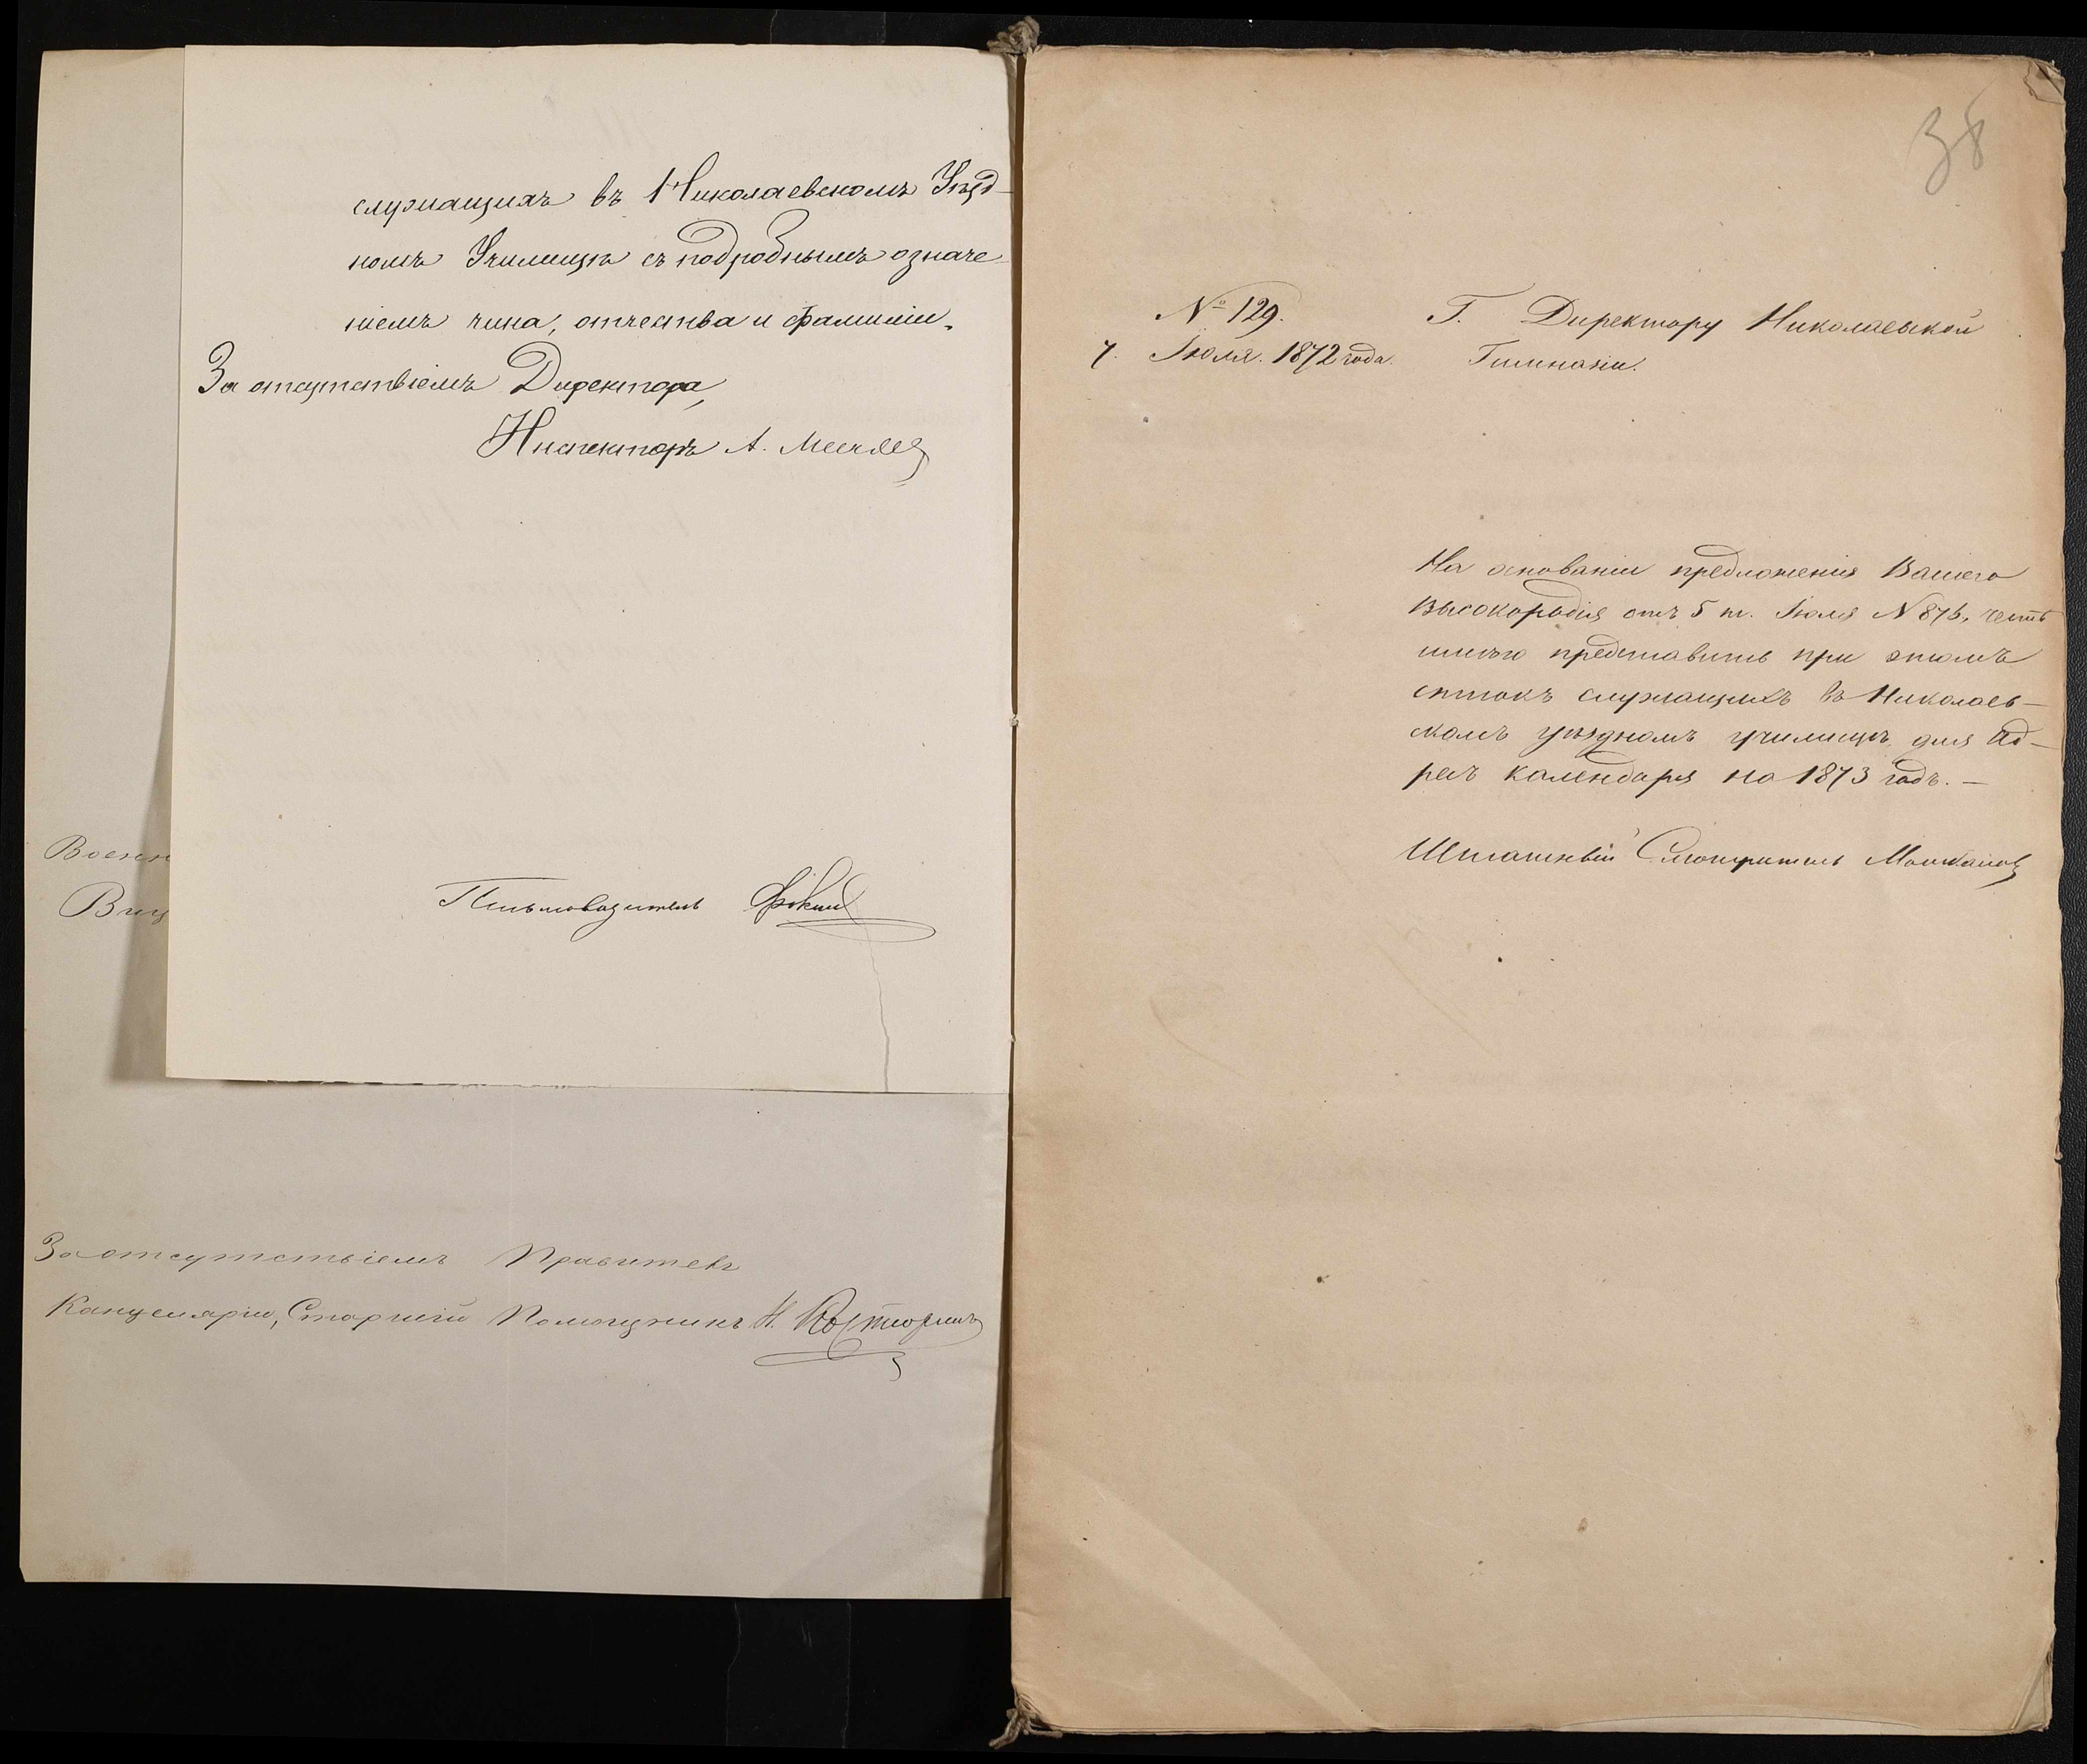 служащихъ въ Николаевскомъ Уѣзд-
номъ Училищѣ съ подробнымъ означе-
ніемъ чина, отчества и фамиліи.
За отсутствіемъ Директора,
Инспекторъ А.
Письмоводитель Фокин
Военн
Виц
За отсутствіемъ Правителя
Канцеляріи, Старшій Помощникъ Н.
38
№ 129.
7. Іюля. 1872 года.
Г. Директору Николаевской
Гимназіи.
На основаніи предложенія Вашего
Высокородія отъ 5 т. Іюля № 876, честь
имѣю представить при этомъ
списокъ служащихъ въ Николаев-
скомъ уѣздномъ училищѣ для Ад-
ресъ календаря на 1873 годъ. —
Штатный Смотритель